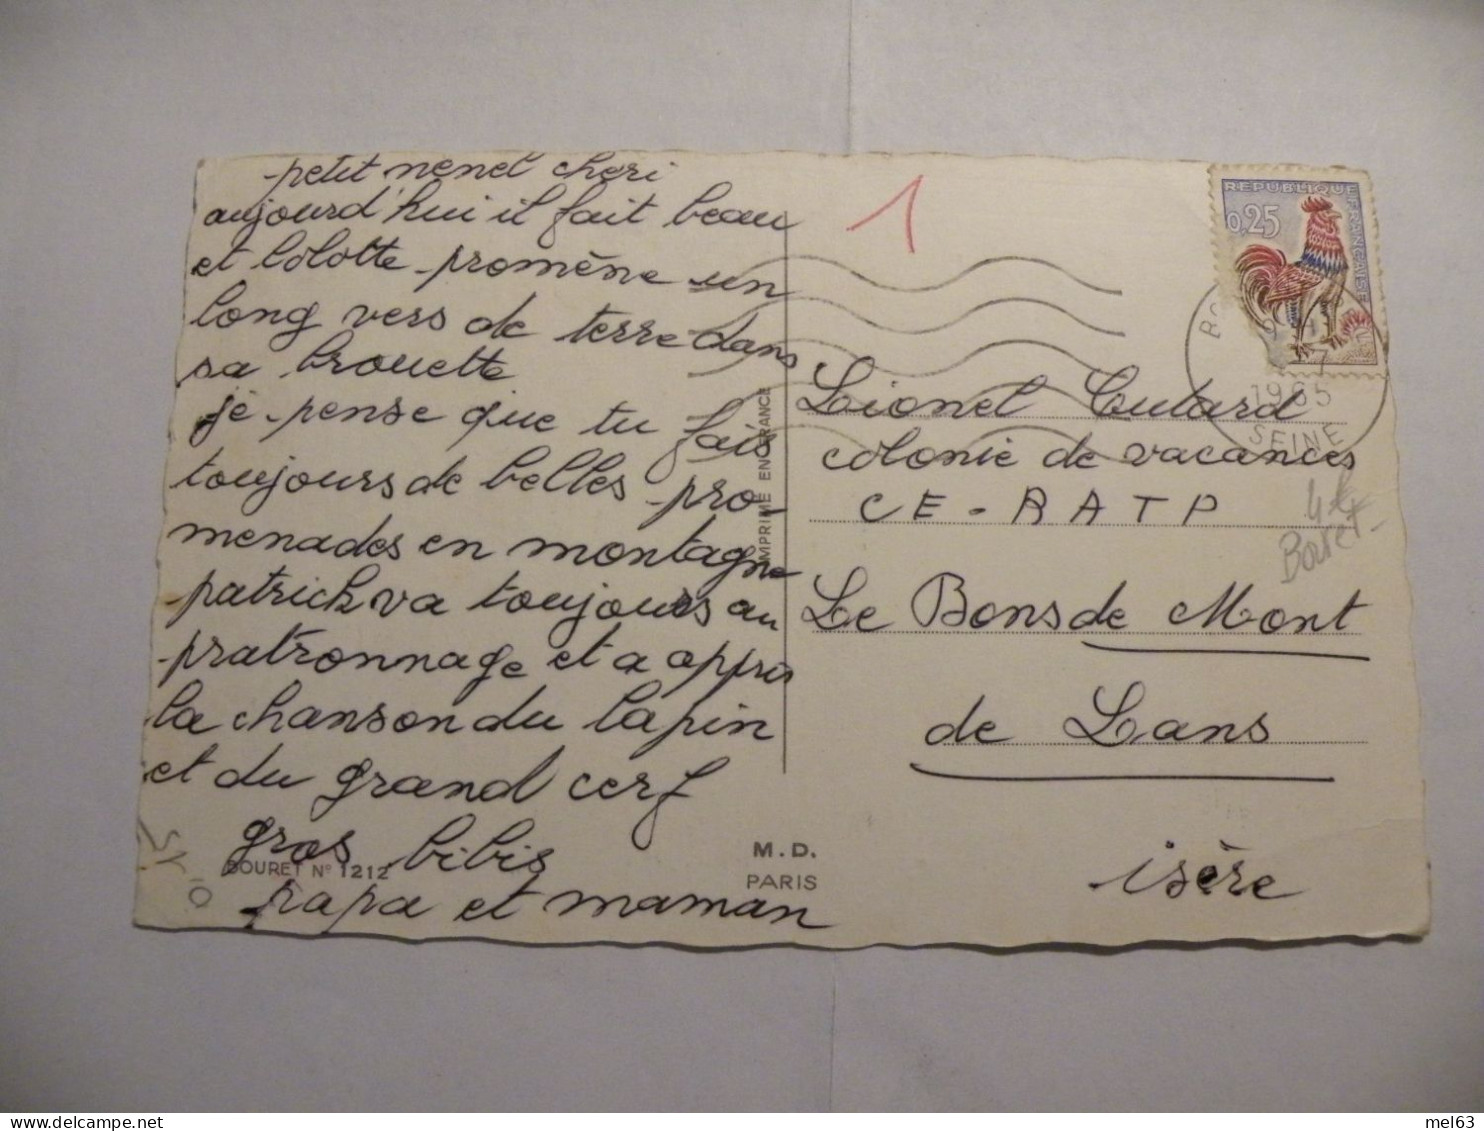 petit nenet cheri
aujourd'hui il fait beau
et lolotte promène un
long vers de terre dans
sa brouette
je pense que tu fais
toujours de belles pro-
menades en montagne
patrick va toujours au
pratronnage et a appris
la chanson du lapin
et du grand cerf
gros bibis
papa et maman
BOURET N° 1212
M.D.
PARIS
IMPRIME EN FRANCE
1
REPUBLIQUE FRANÇAISE
0,25
1965
SEINE
Lionel Cutard
colonie de vacances
CE-RATP
4€
Bouret
Le Bons de Mont
de Lans
isère
mel63